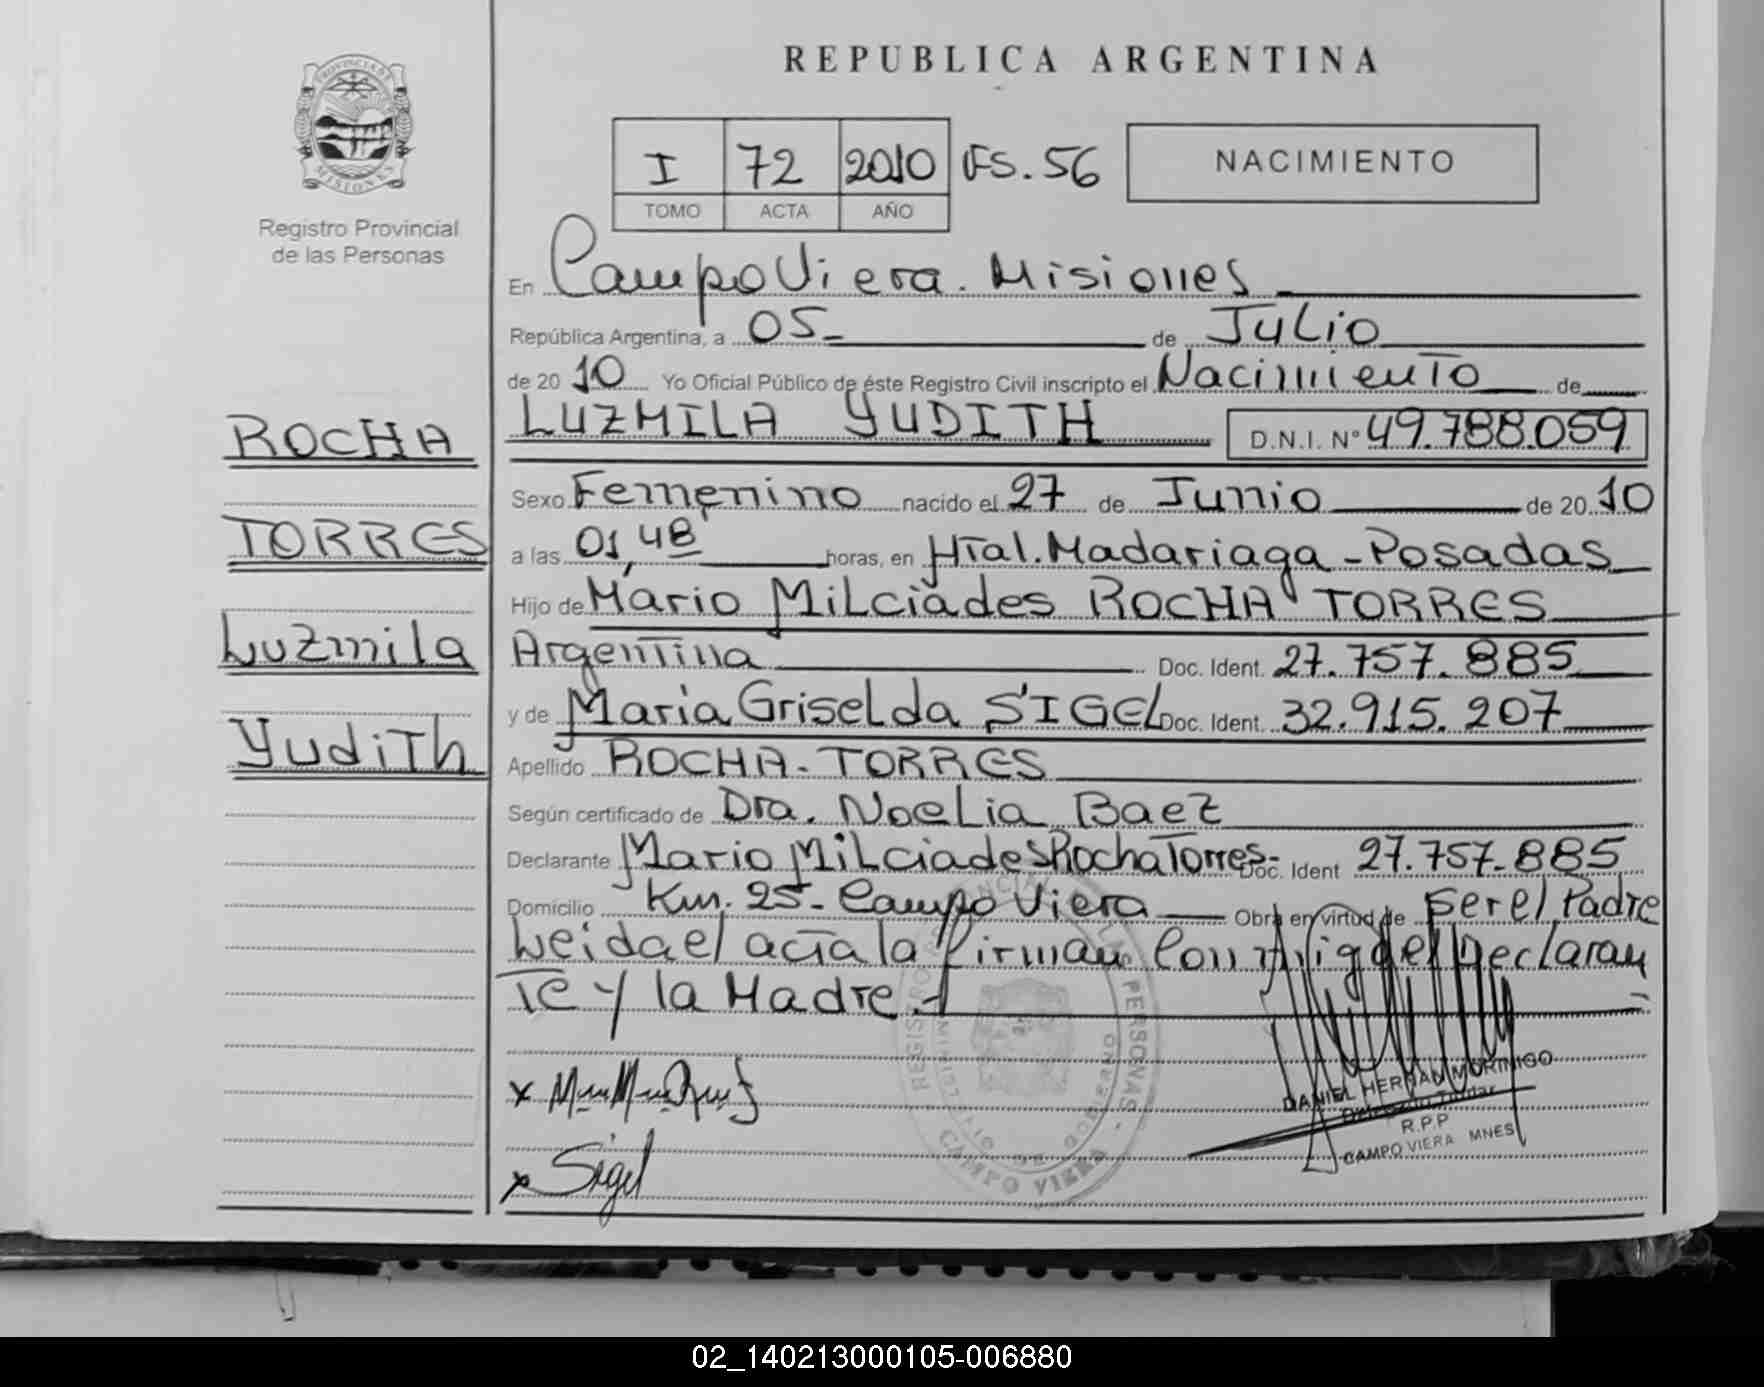 REPUBLICA ARGENTINA
PROVINCIA DE MISIONES
Registro Provincial
de las Personas
I 72 2010 FS. 56
TOMO ACTA AÑO
NACIMIENTO
En Campo Viera. Misiones
República Argentina, a 05 de Julio
de 2010 Yo Oficial Público de éste Registro Civil inscripto el Nacimiento de
LUZMILA YUDITH D.N.I. N° 49.788.059
Sexo Femenino nacido el 27 de Junio de 2010
a las 01,48 horas, en HTal. Madariaga - Posadas
Hijo de Mario Milciades ROCHA TORRES
Argentina Doc. Ident. 27.757.885
y de Maria Griselda SIGEL Doc. Ident. 32.915.207
Apellido ROCHA-TORRES
Según certificado de Dra. Noelia Baez
Declarante Mario Milciades Rocha Torres- Doc. Ident 27.757.885
Domicilio Km. 25- Campo Viera Obra en virtud de ser el Padre
Leida el acta la firman Conmigo el Declaran
Te y la Madre.
ROCHA
TORRES
Luzmila
Yudith
x
x Sigel
REGISTRO PROVINCIAL DE LAS PERSONAS
MINISTERIO DE GOBIERNO
CAMPO VIERA
DANIEL HERNAN MORINIGO
Delegado Titular
R.P.P
CAMPO VIERA MNES
02_140213000105-006880